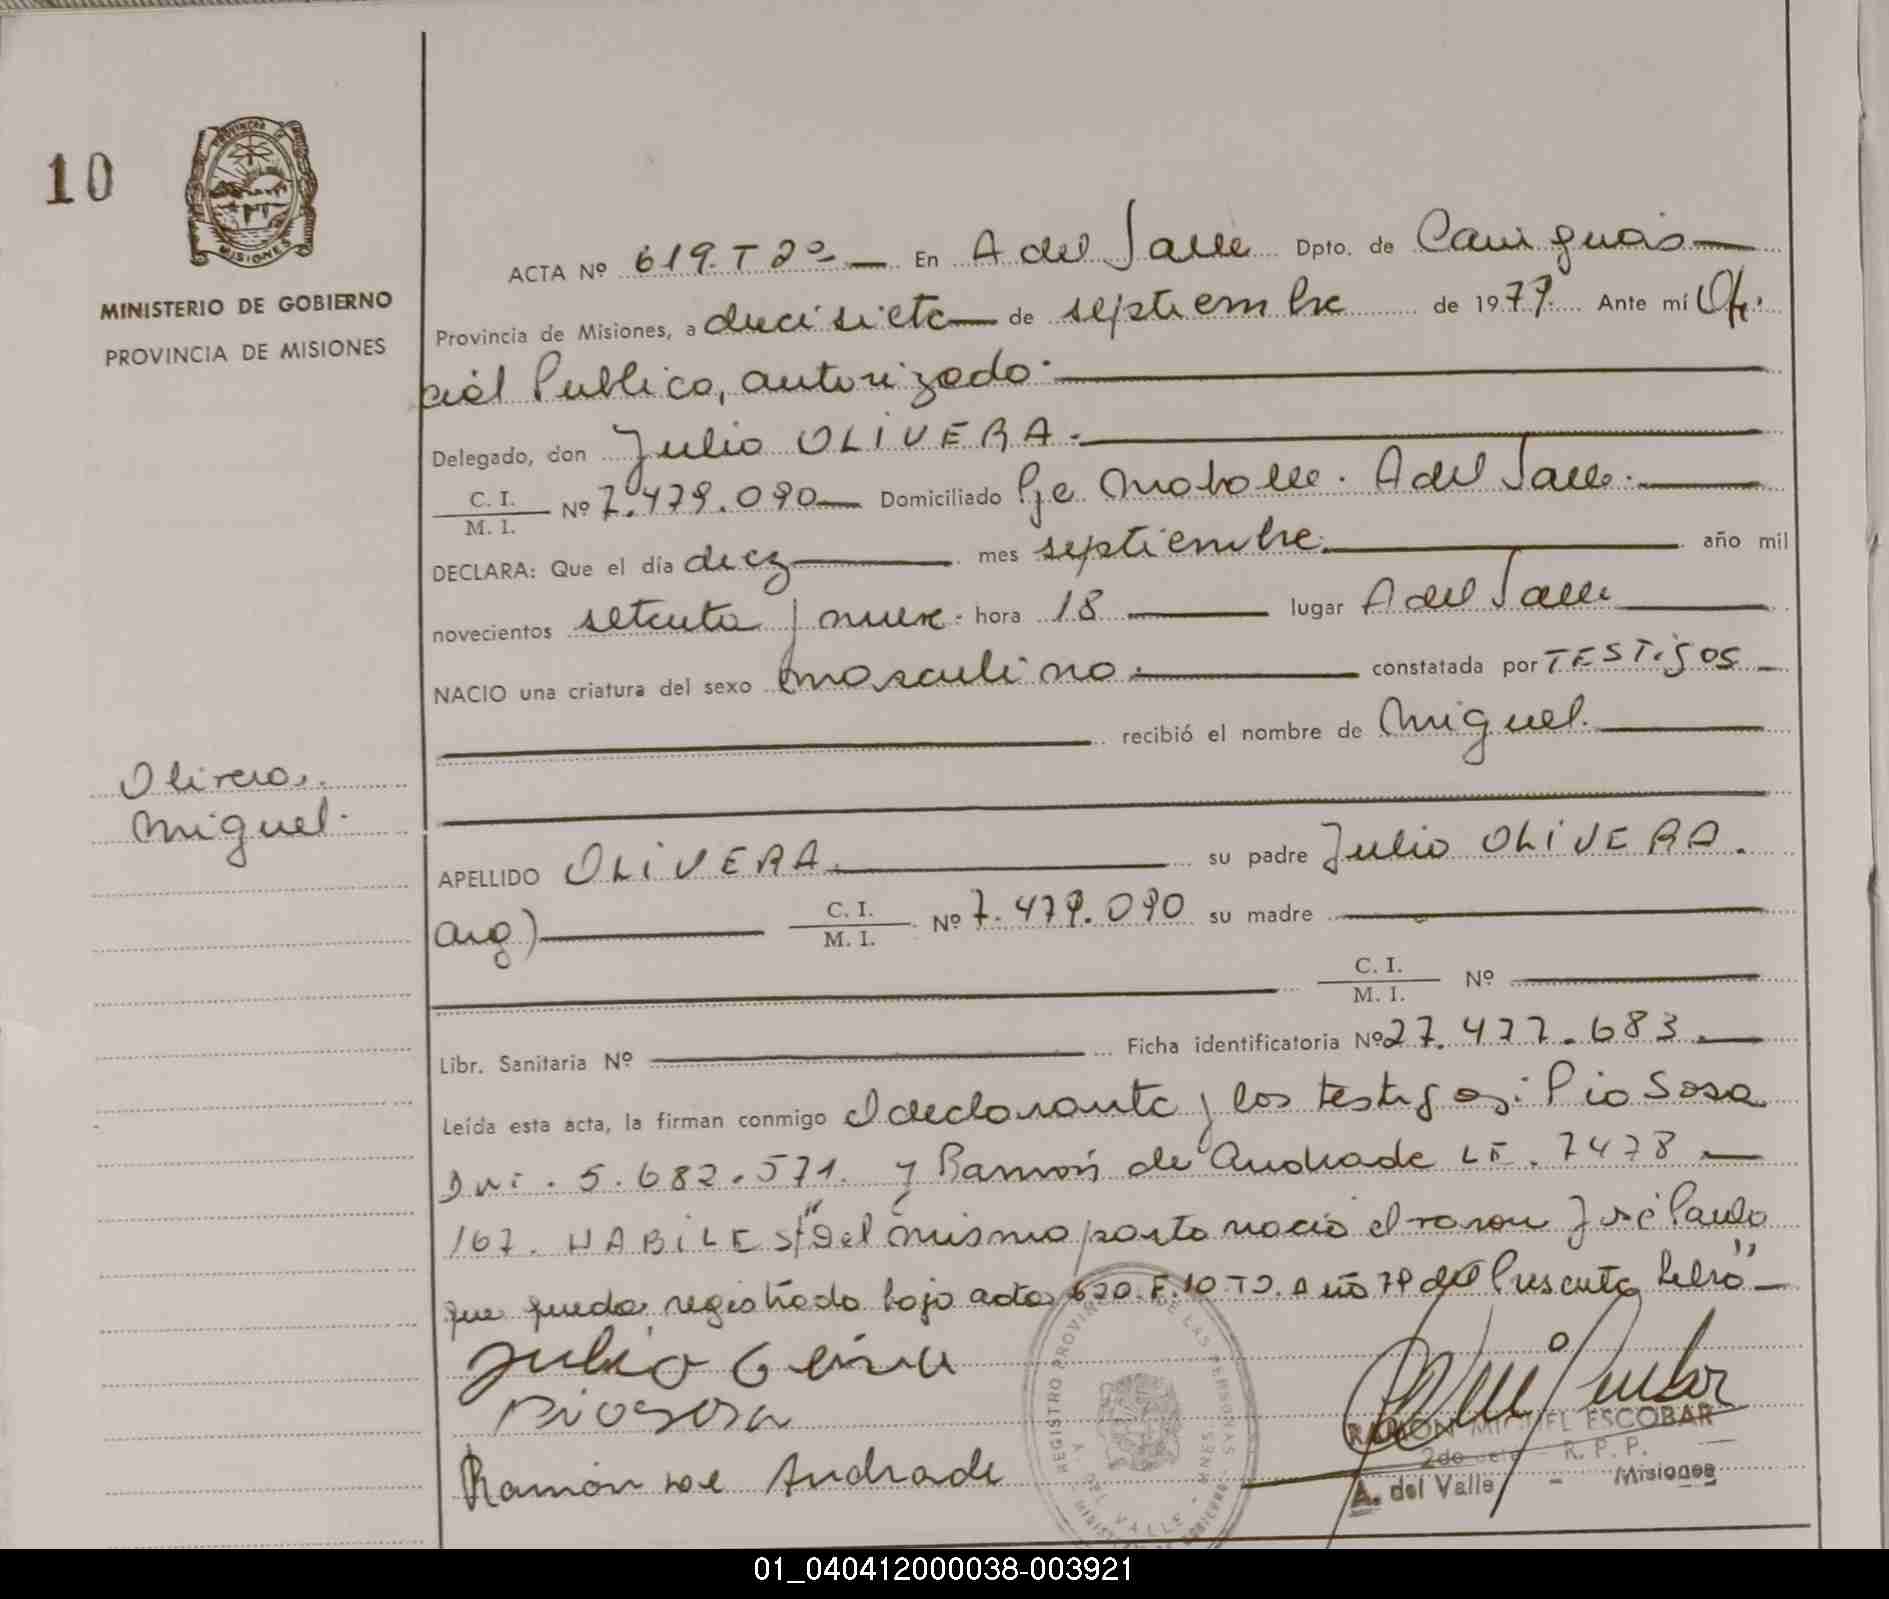 10
PROVINCIA DE
MISIONES
MINISTERIO DE GOBIERNO
PROVINCIA DE MISIONES
ACTA Nº 619. T 2º — En A del Valle Dpto. de Cainguás —
Provincia de Misiones, a diecisiete — de septiembre de 1979. Ante mí Ofi-
cial Publico, autorizado. —
Delegado, don Julio OLIVERA. —
C. I. / M. I. Nº 7.479.090 — Domiciliado Pje Mobolle. A del Valle. —
DECLARA: Que el día diez — mes septiembre. — año mil
novecientos setenta y nueve. hora 18 — lugar A del Valle —
NACIO una criatura del sexo masculino. — constatada por TESTigos —
— recibió el nombre de Miguel. —
Olivera.
Miguel.
APELLIDO OLIVERA. — su padre Julio OLIVERA.
arg) — C. I. / M. I. Nº 7.479.090 su madre —
— C. I. / M. I. Nº —
Libr. Sanitaria Nº — Ficha identificatoria Nº 27.477.683. —
Leída esta acta, la firman conmigo el declarante y los testigos: Pio Sosa
Dni. 5.682.571. y Ramón de Andrade LE. 7478 —
167. HABILES/ "Del mismo parto nació el varon José Paulo
que queda registrado bajo acta 620. F. 10 T2. Año 79 del Presente Libro" —
Julio
Pio Sosa
Ramón de Andrade
REGISTRO PROVINCIAL DE LAS PERSONAS
A. DEL VALLE - MNES
RAMON MIGUEL ESCOBAR
R. P. P.
A. del Valle - Misiones
01_040412000038-003921